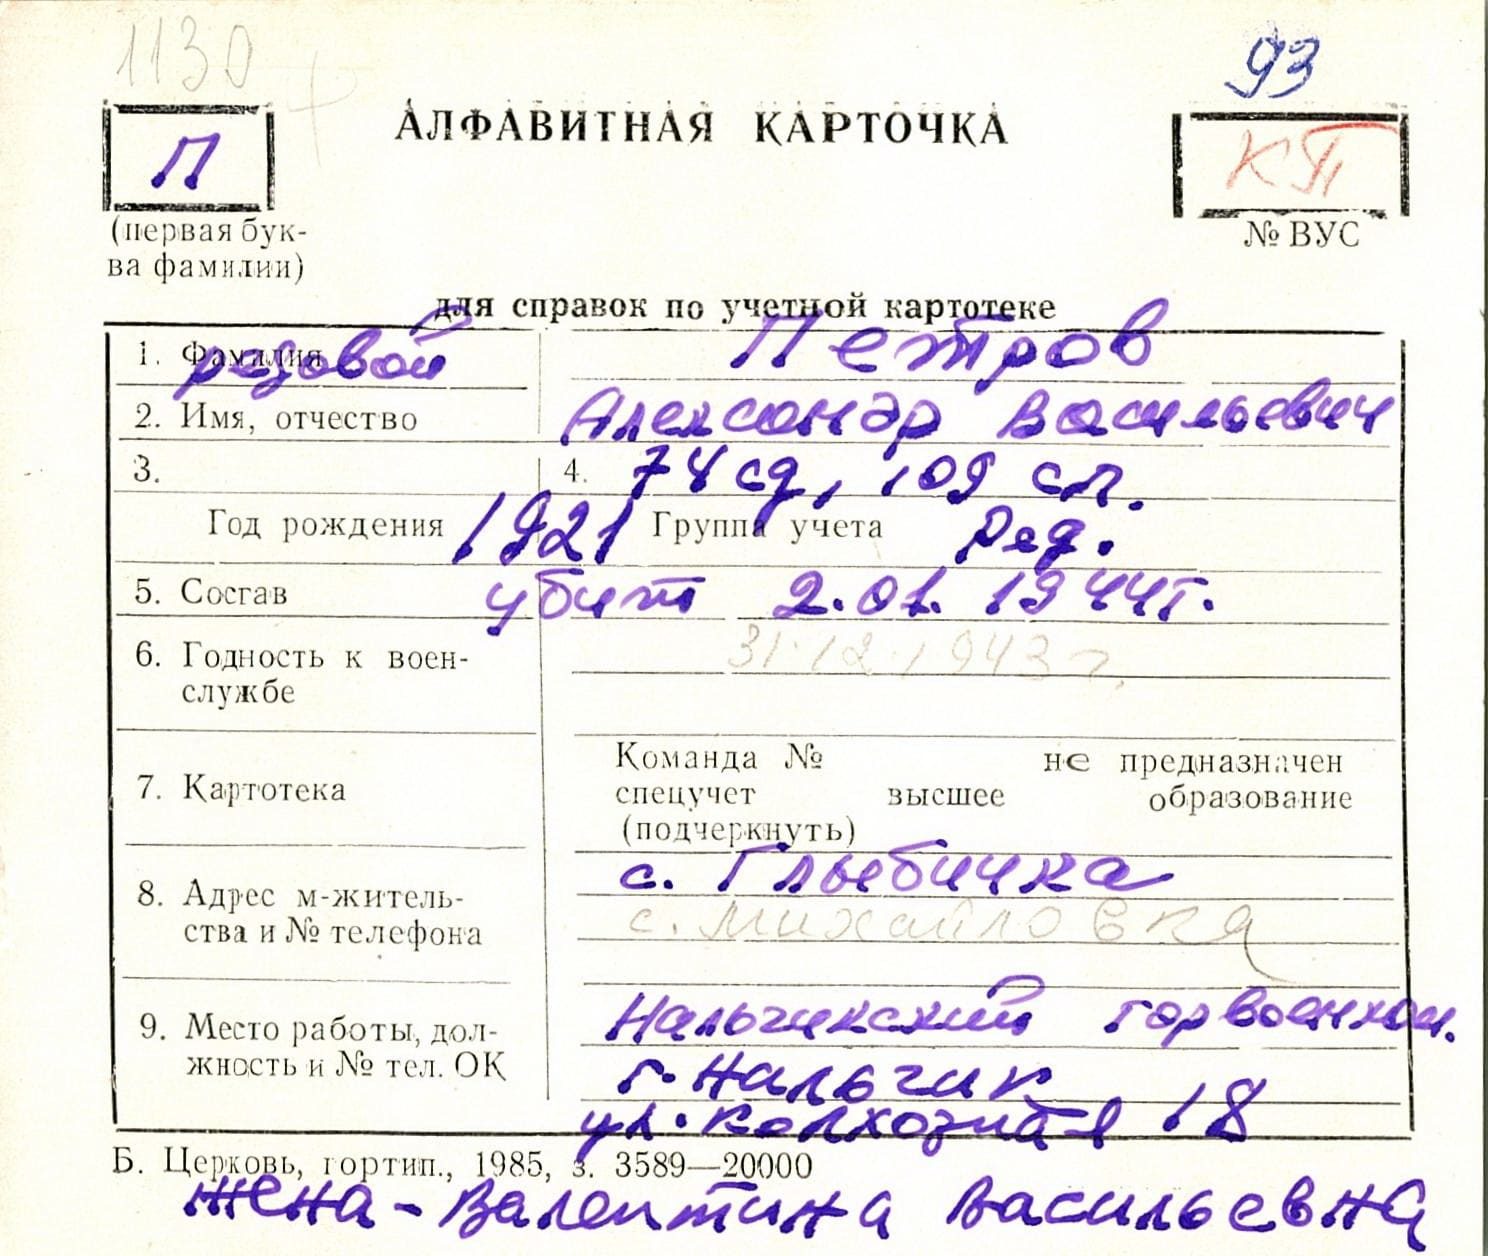 1130
93
П
АЛФАВИТНАЯ КАРТОЧКА
КП
(первая бук-
ва фамилии)
№ ВУС
для справок по учетной картотеке
1. Фамилия рядовой Петров
2. Имя, отчество Александр Васильевич
3. 4. 74 сд, 109 сп.
Год рождения 1921 Группа учета Ряд.
5. Состав убит 2.01.1944г.
6. Годность к воен- 31.12.1943г.
службе
7. Картотека
Команда № не предназначен
спецучет высшее образование
(подчеркнуть)
8. Адрес м-житель-
ства и № телефона
с. Глыбичка
с. Михайловка
9. Место работы, дол-
жность и № тел. ОК
Нальчикский горвоенком.
г. Нальчик
ул. Колхозная 18
Б. Церковь, гортип., 1985, з. 3589—20000
жена - Валентина Васильевна